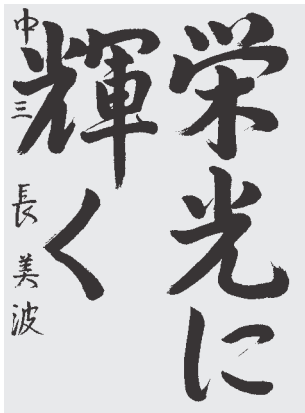 栄光に
輝く
中三 長 美波